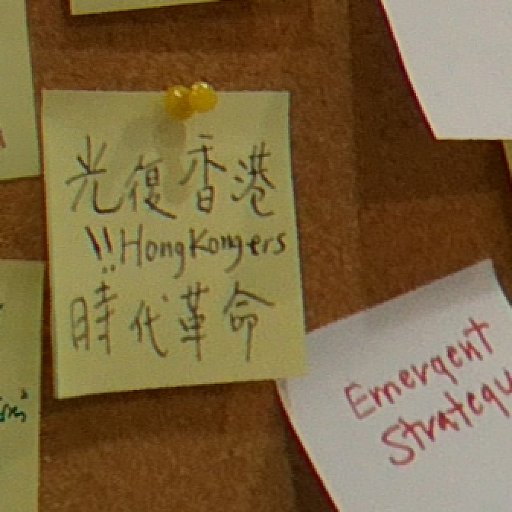 光復香港
!! HongKongers
時代革命
Emergent
Strategy